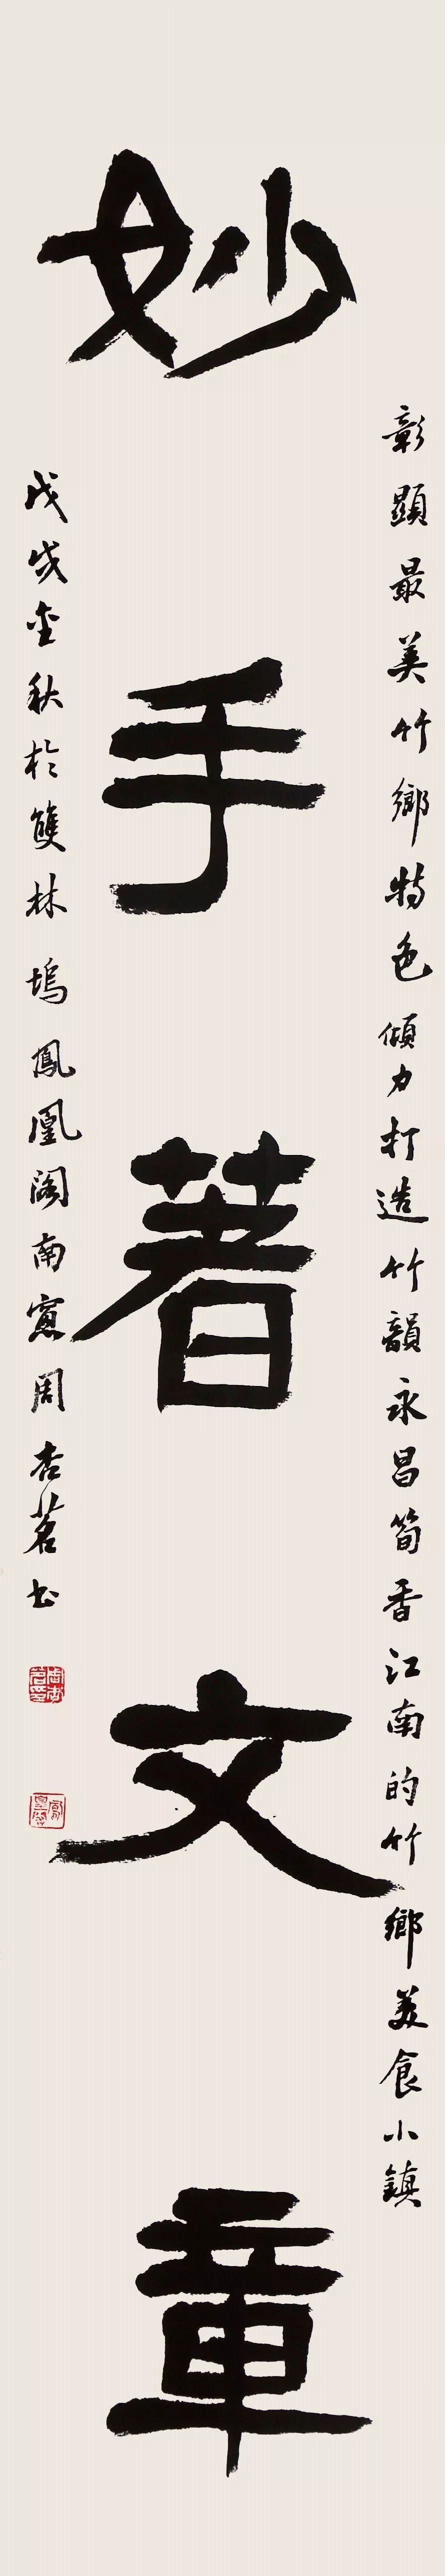 彰顯最美竹鄉特色傾力打造竹韻永昌筍香江南的竹鄉美食小鎮
妙手著文章
戊戌金秋於雙林塢鳳凰閣南窻周杏茗书